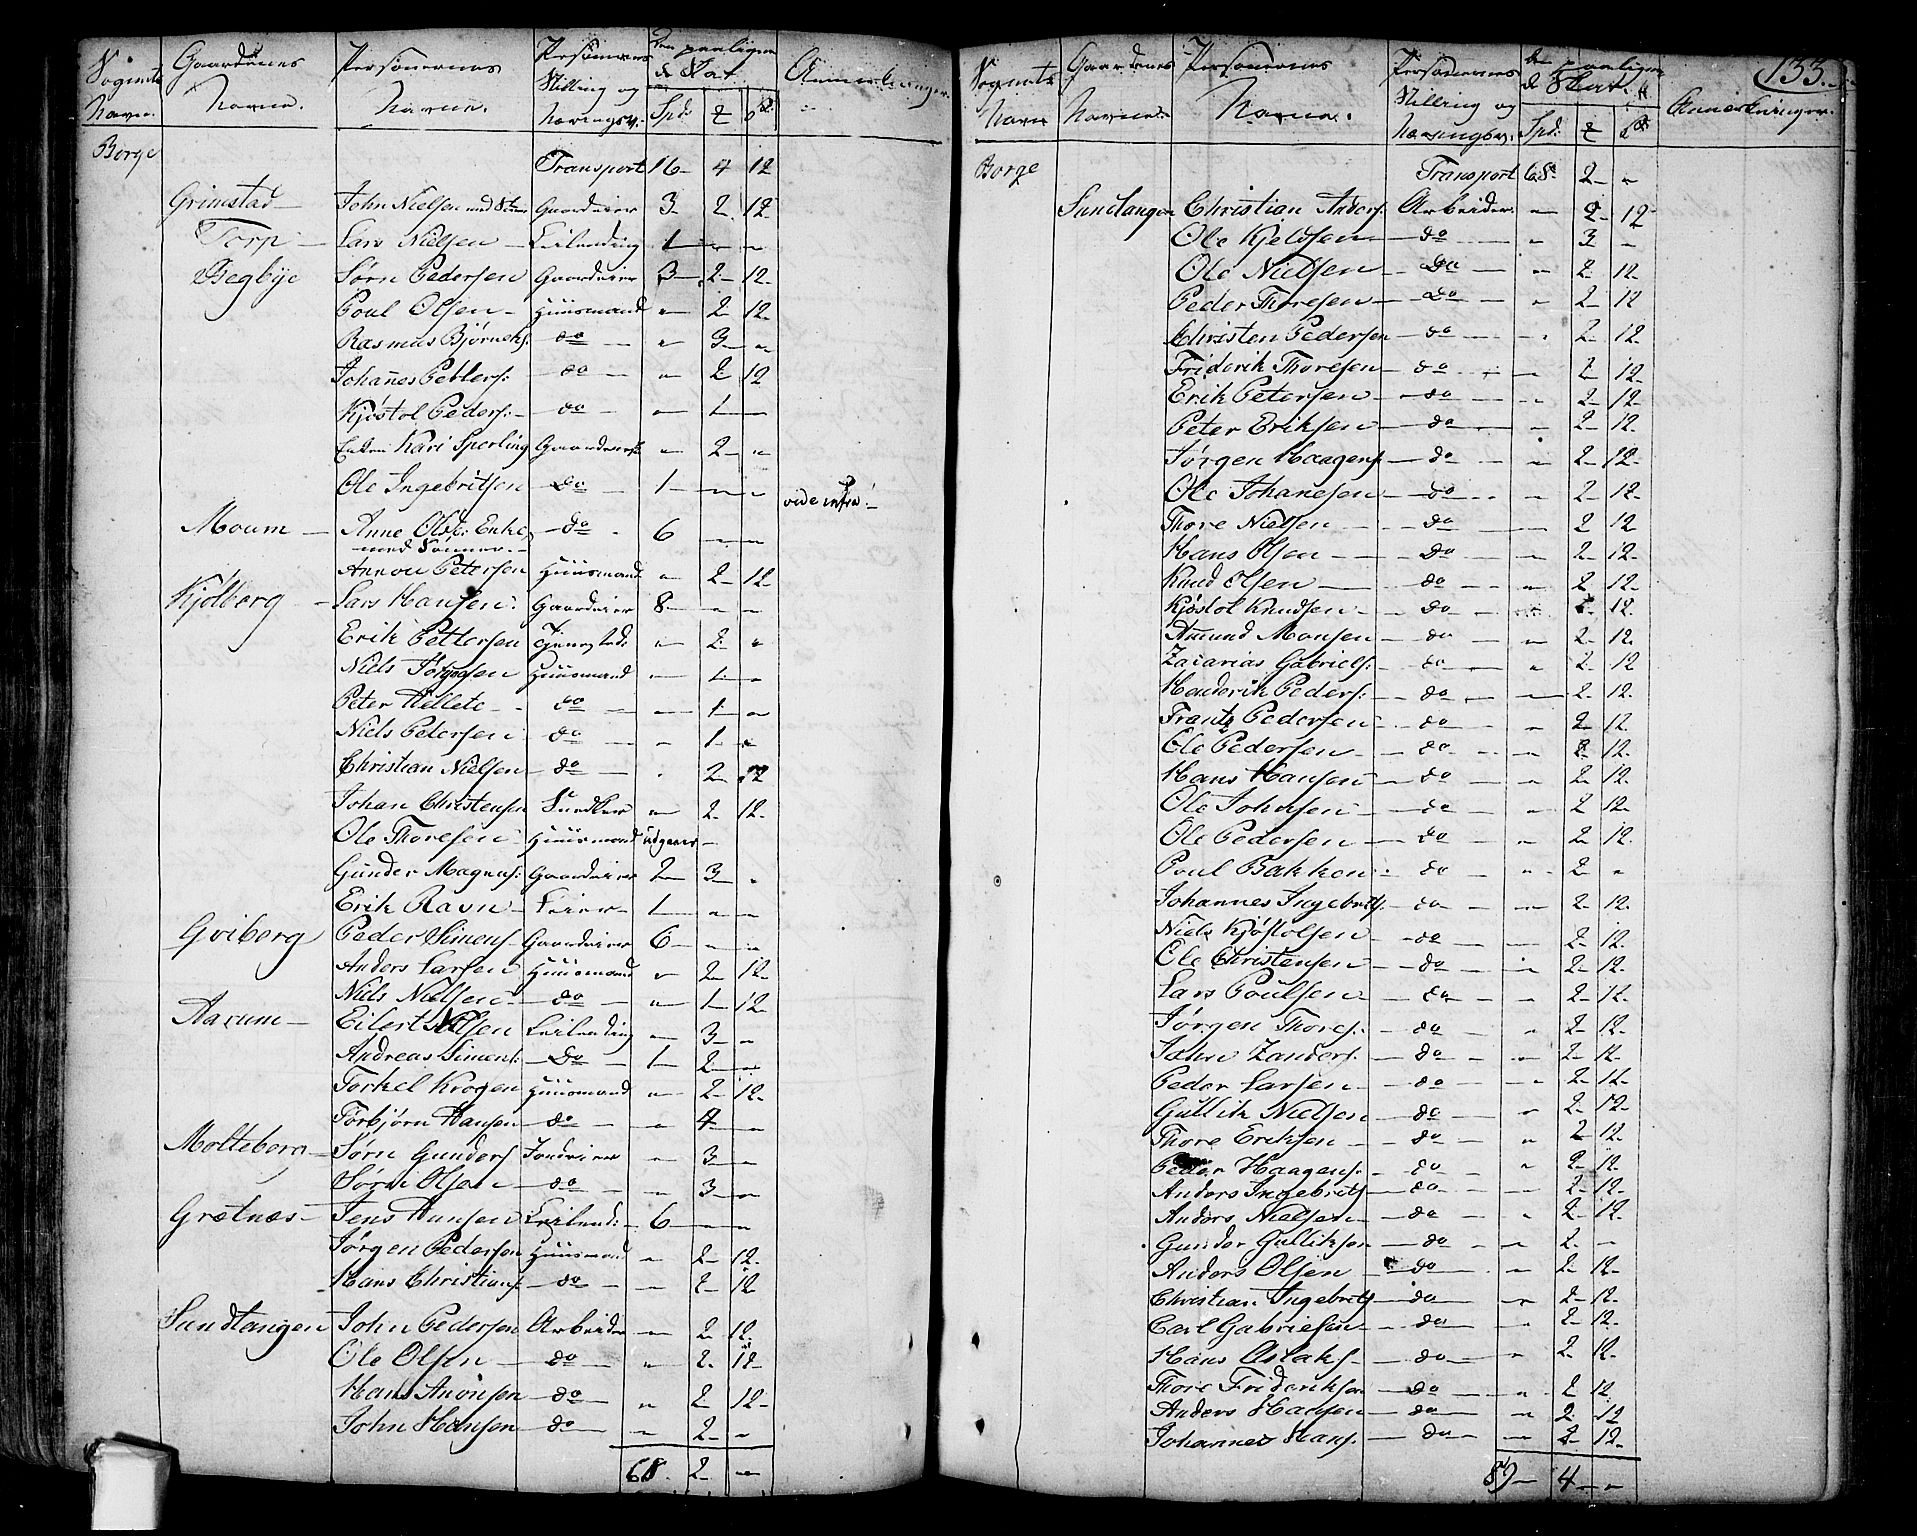 Sognets Navn. | Gaardenes Navne. | Personernes Navne. | Personernes Stilling og Næringsv: | Den paaligende Skat. Spd: | Anmerkninger
Borge
Transport 16 - 4 12
Grimstad - John Nielsen med Gaardeier 3 - 2. 12.
Torp - Lars Nielsen - Leilending 1 - - "
Begbye Sørn Pedersen Gaardeier 3 - 2 - 12.
Poul Olsen - Huusmand " 2 - 12.
Rasmus Bjørneks. do " 3 - "
Johannes Petters: do " 2 12
Kjøstol Peders: - do - " 1 - "
Enken Kari Sperling Gaardeiersk " 2 - "
Ole Ingebritsen do 1 - - " vide infra! -
Moum - Anne Olsd: Enke do 6 - "
med Sønner. -
Petersen Huusmand " 2 - 12
Kjølberg - Lars Hansen. Gaardeier 8 - " "
Erik Pettersen Tjenestd: " 2 - "
Niels Huusmand " 1 - "
Peter - do " 1 - "
Niels Petersen do " 1 - "
Christian Nielsen - do " 2 - 12
Johan Christensen " 2 - 12.
Ole Thoresen Huusmand udgaaer -
Gunder Magnus: Gaardeier 2 - 3 - "
Erik Ravn - Leier - 1 - " "
Gviberg Peder Simens - Gaardeier 6 - " "
Anders Larsen Huusmand " 2 - 12.
Niels Nielsen - do " 1 - 12.
Aarum - Eilert Leilending " 3 - "
Andreas Simens: - do 1 - 2 - "
Torkel Krogen Huusmand " 2 - 12
Torbjørn Hansen do " 4 - "
Molteberg - Sørn Gunders Jordeier " 3 - "
Sørn Olsen - do " 3 - "
Grætnes - Jens Hansen Leilend: 6 - " "
Jørgen Pedersen Huusmand " 2 - 12.
Hans Christians - do " 2 - 12
Sundtangen John Pedersen Arbeider " 2 12.
Ole Olsen - do " 2 - 12 -
Hans Aronsen do " 2 12 -
John Hansen do " 2 - "
68. 2 - "
133.
Sognets Navn | Gaardenes Navne. | Personernes Navne. | Personernes Stilling og Næringsv: | Den paaligende Skat. Spd: | Anmerkninger.
Borge Transport 68. 2 - "
Sundtangen Christian Anders. Arbeider. " 2 - 12
Ole Kjeldsen - do " 3 - "
Ole Nielsen - do " 2 - 12
Peder Thoresen - do " 2 - 12
Christen Pedersen do " 2 - 12.
Friderik Thoresen - do " 2 12.
Erik Petersen - do " 2 - 12.
Peter Eriksen - do " 2 - 12
Jørgen Haagens - do " 2 - 12.
Ole Johanesen - do " 2 - 12.
Thore Nielsen - do " 2 12
Hans Olsen - do " 2 - 12.
Knud Olsen - do " 2 - 12.
Kjøstol Knudsen - do " 12.
Amund Monsen - do " 2 - 12
Zacarias Gabriels: do " 2 - 12
Henderik Peders: do " 2 - 12.
Frants Pedersen - do " 2 - 12.
Ole Pedersen - do " 2 - 12.
Hans Hansen do " 2 - 12.
Ole Johnsen do " 2 12.
Ole Pedersen - do " 2 - 12.
Poul Bakken do " 2 - "
Johannes Ingebrets. do " 2 - 12.
Niels Kjøstolsen - do " 2 - 12.
Ole Christensen - do " 2 - 12.
Lars Poulsen - do " 2 - 12.
Jørgen Thores: do " 2 - 12.
John Zanders. do " 2 - 12.
Peder Larsen - do " 2 - 12.
Gullik Nielsen do " 2 - 12.
Thore Eriksen - do " 2 12.
Peder Haagens. - do " 2 - 12.
Anders Ingebrets - do " 2 - 12.
Anders Nielsen - do " 2 - 12.
Gunder Gulliksen - do " 2 - "
Anders Olsen - do " 2 - 12.
Christian Ingebrets - do " 2 - 12.
Carl Gabrielsen - do " 2 - 12.
Hans Aslaks - do " 2 - 12.
Thore Frideriksen - do " 2 12.
Anders Hansen - do " 2 - 12
Johannes Hans. do " 2 - 12.
89 - 4 - "